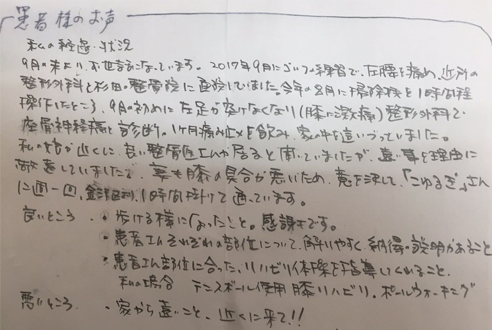 患者様のお声
私の経過・状況
9月の末より、お世話になっています。2017年9月にゴルフの練習で、左腰を痛め、近所の
整形外科と杉田の整骨院に通院していました。今年の8月に掃除機を1時間程
操作したところ、9月の初めに左足が突けなくなり(膝に激痛)整形外科で
座骨神経痛と診断。1ヶ月痛み止メを飲み家の中を這いづっていました。
私の
近くに良い整骨医さんが居ると聞いていましたが、遠い事を理由に
敬遠していましたで、妻も膝の具合が悪いため、意を決して、「こゆるぎ」さん
に週一回、1時間掛けて通っています。
良いところ ・歩ける様になったこと。感謝です。
・患者さんそれぞれの部位について、解りやすく納得の説明があること
・患者さん部位に合った、リハビリ体操を指導してくれること
私の場合 テニスボール使用膝リハビリ。ポールウォーキング
悪いところ ・家から遠いこと、近くに来て!!